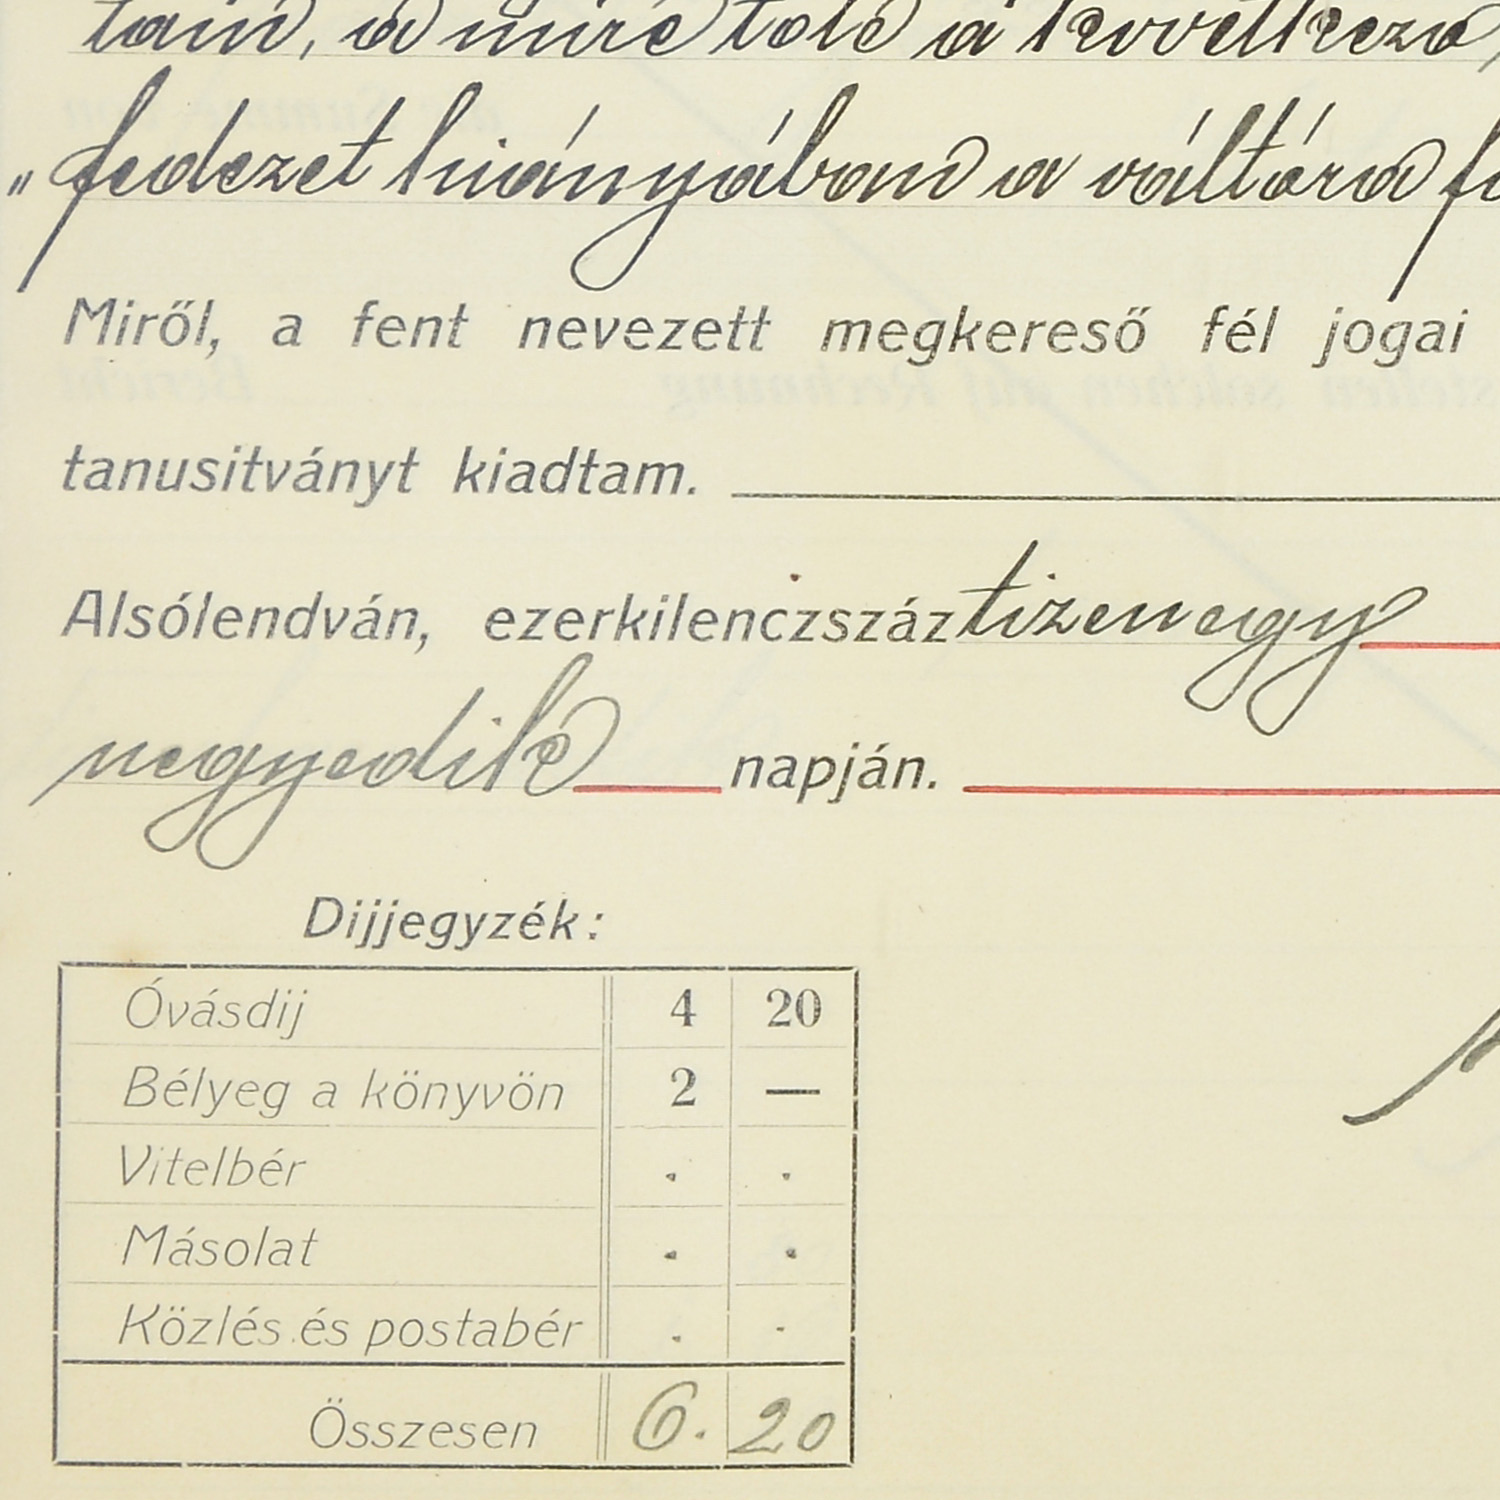 tám, a mire tőle a következő,
„fedezet hiányában a váltóra
Miről, a fent nevezett megkereső fél jogai
tanusitványt kiadtam.
Alsólendván, ezerkilenczszáz tizenegy
negyedik napján.
Dijjegyzék:
Óvásdij 4 20
Bélyeg a könyvön 2 —
Vitelbér . .
Másolat . .
Közlés és postabér . .
Összesen 6. 20